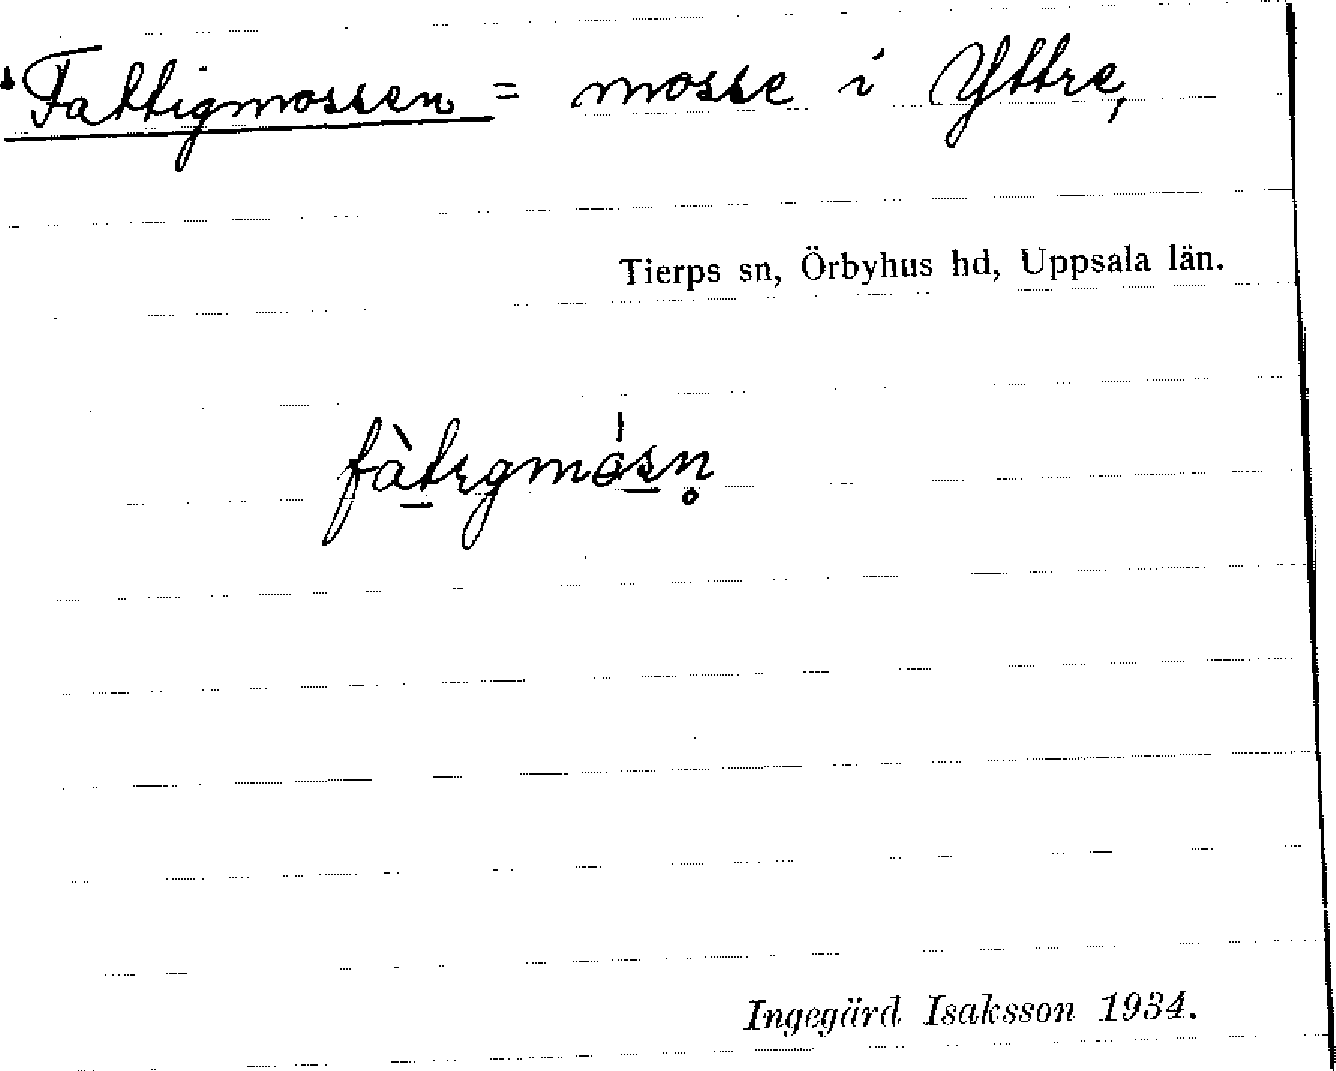 Fattigmossen = mosse i Yttre,
Tierps sn, Örbyhus hd, Uppsala län.
fàt̲ıgmós̲n̥
Ingegärd Isaksson 1934.